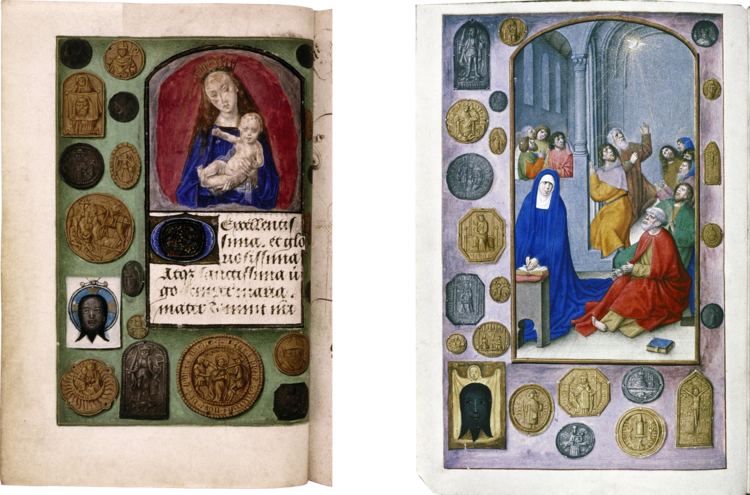 O Excellentis
sima. et glo
riosissima
Atqꝫ sanctissima ui
go semper maria.
mater domini nri